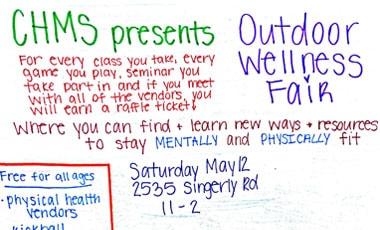 CHMS presents
Outdoor
Wellness
Fair
For every class you take, every
game you play, seminar you
take part in and if you meet
with all of the vendors, you
will earn a raffle ticket!
Where you can find + learn new ways + resources
to stay MENTALLY and PHYSICALLY fit
Free for all ages
• physical health
vendors
kickball
Saturday May 12
2535 Singerly Rd
11-2